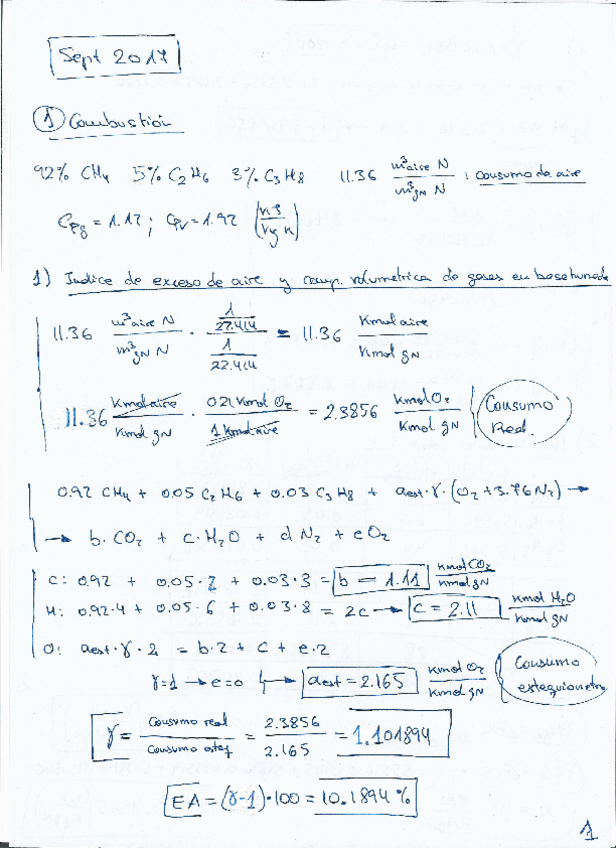 Sept 2017
① Combustión
92% CH4 5% C2H6 3% C3H8 11.36 m³aire N / m³gN N : consumo de aire
Cpg = 1.17 ; Cpv = 1.92 (KJ / Kg K)
1) Indice de exceso de aire y comp. volumetrica de gases en base humeda
11.36 m³aire N / m³gN N · (1/22.414) / (1/22.414) = 11.36 Kmol aire / Kmol gN
11.36 Kmol aire / Kmol gN · 0.21 Kmol O2 / 1 Kmol aire = 2.3856 Kmol O2 / Kmol gN { Consumo Real.
0.92 CH4 + 0.05 C2H6 + 0.03 C3H8 + aest·γ·(O2 + 3.76 N2) →
→ b·CO2 + c·H2O + d N2 + e O2
C: 0.92 + 0.05·2 + 0.03·3 = b = 1.11 Kmol CO2 / Kmol gN
H: 0.92·4 + 0.05·6 + 0.03·8 = 2c → c = 2.11 Kmol H2O / Kmol gN
O: aest·γ·2 = b·2 + c + e·2
γ=1 → e=0 ↳ aest = 2.165 Kmol O2 / Kmol gN { Consumo estequiometr
γ = consumo real / consumo esteq = 2.3856 / 2.165 = 1.101894
EA = (γ-1)·100 = 10.1894 %
1